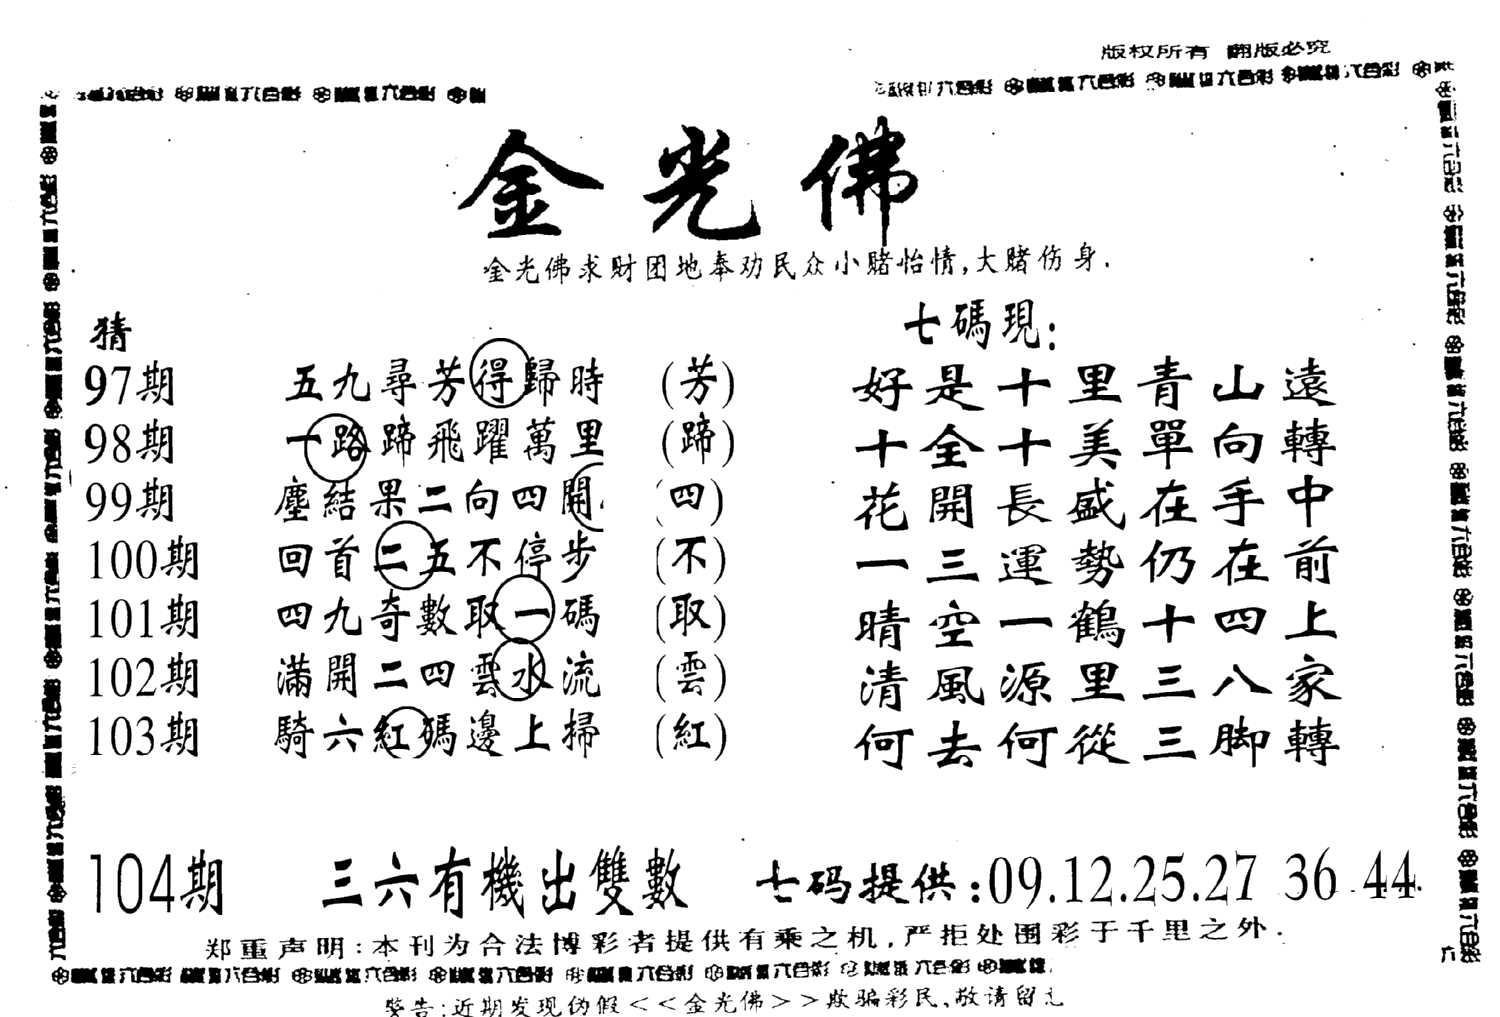 版权所有 翻版必究
金光佛
金光佛求财团地奉劝民众小赌怡情,大赌伤身.
猜
七碼現:
97期 五九尋芳得歸時 (芳) 好是十里青山遠
98期 一路蹄飛躍萬里 (蹄) 十全十美單向轉
99期 塵結果二向四開 (四) 花開長盛在手中
100期 回首二五不停步 (不) 一三運勢仍在前
101期 四九奇數取一碼 (取) 晴空一鶴十四上
102期 滿開二四雲水流 (雲) 清風源里三八家
103期 騎六紅碼邊上掃 (紅) 何去何從三脚轉
104期 三六有機出雙數 七码提供:09.12.25.27 36 44
郑重声明:本刊为合法博彩者提供有乘之机,严拒处围彩于千里之外.
六合彩 六合彩 六合彩 六合彩 六合彩 六合彩
警告:近期发现伪假<<金光佛>>欺骗彩民,敬请留